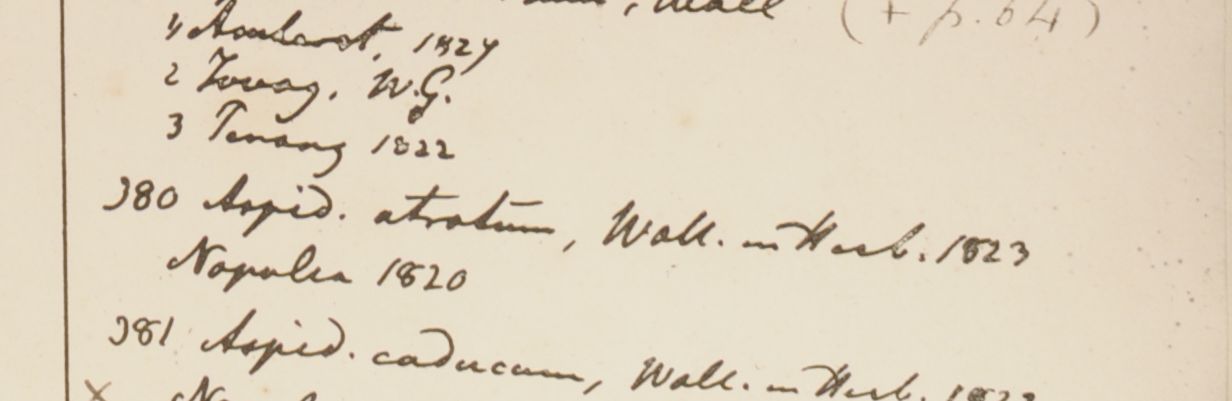 Wall (+ p. 64)
4 Amherst, 1827
2 Tavoy, W.G.
3 Penang 1822
380 Aspid. atratum, Wall. in Herb. 1823
Napalia 1820
381 Aspid. caducum, Wall. in Herb. 1823
×